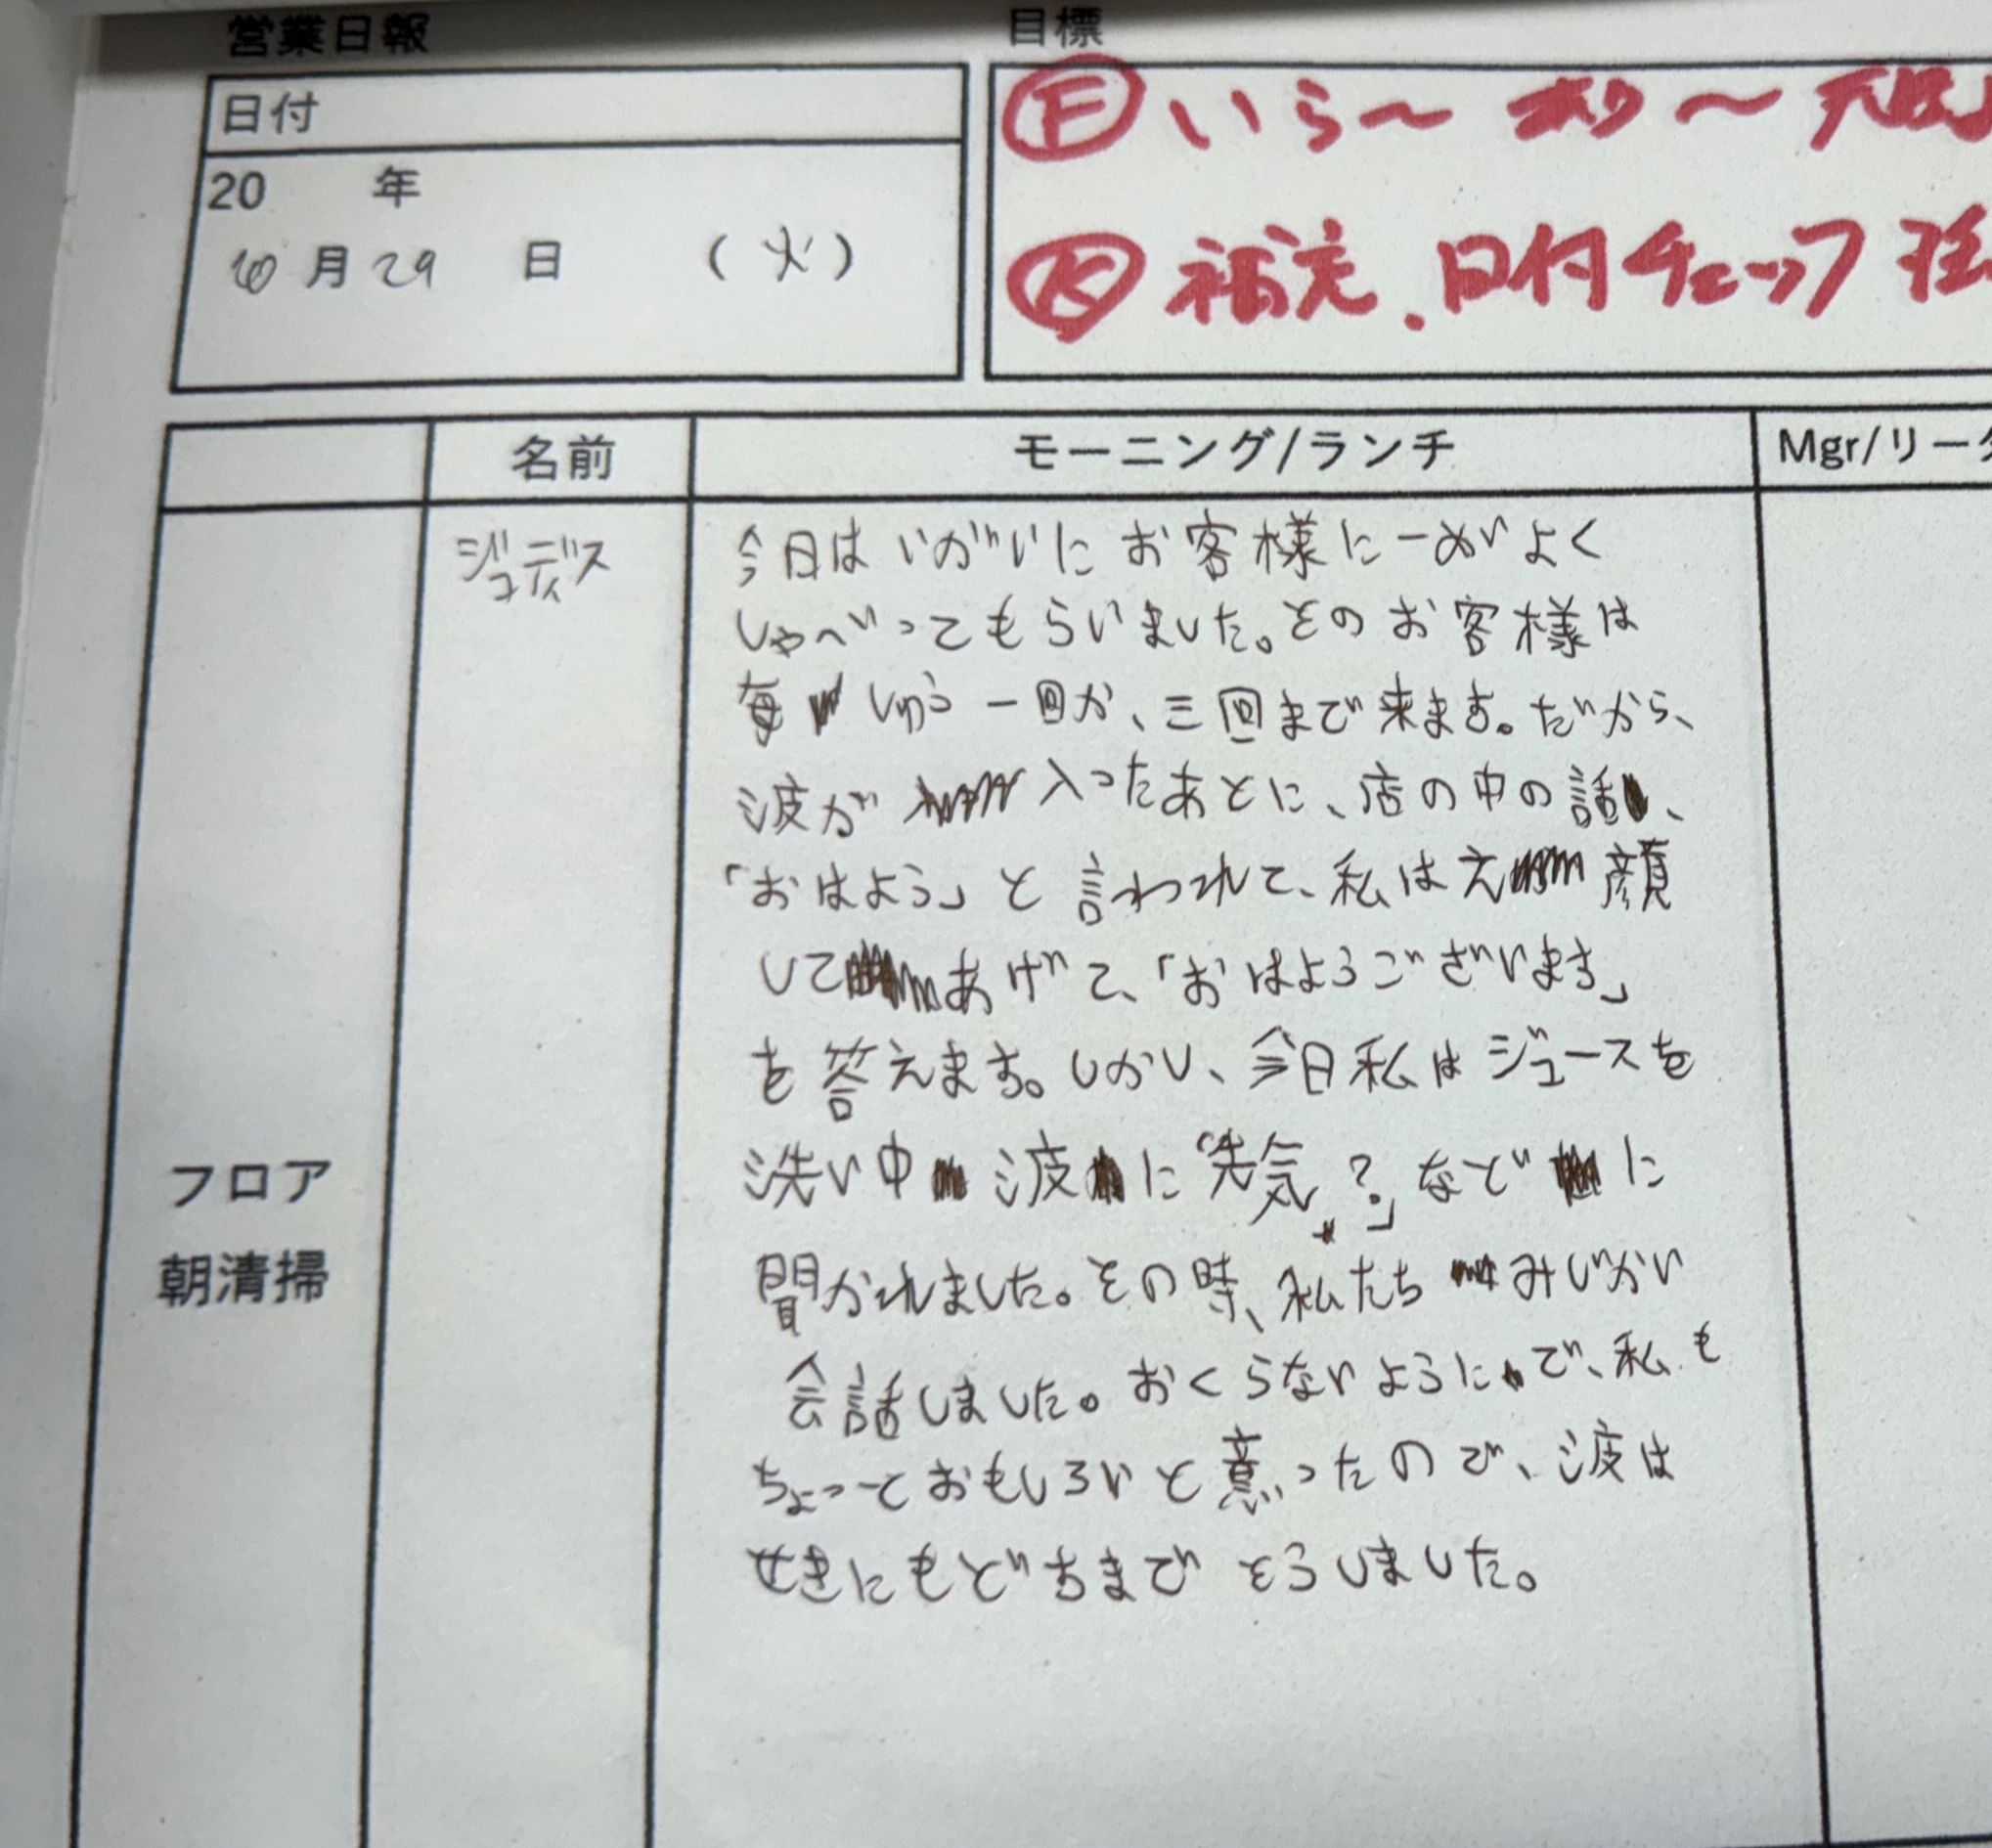 営業日報
目標
日付
20 年
10月29日 (火)
Ⓕ いら〜 あり〜
Ⓚ 補充.日付チェック
名前
モーニング/ランチ
Mgr/リーダ
ジュディス
今日はいがいにお客様に一めいよく
しゃべってもらいました。そのお客様は
毎しゅう一回か、三回まで来ます。だから、
波が入ったあとに、店の中の話、
「おはよう」と言われて、私はえ顔
してあげて、「おはようございます」
を答えます。しかし、今日私はジュースを
洗い中波に「先気?」などに
聞かれました。その時、私たちみじかい
会話しました。おくらないようにで、私も
ちょっとおもしろいと意ったので、波は
せきにもどちまでそうしました。
フロア
朝清掃